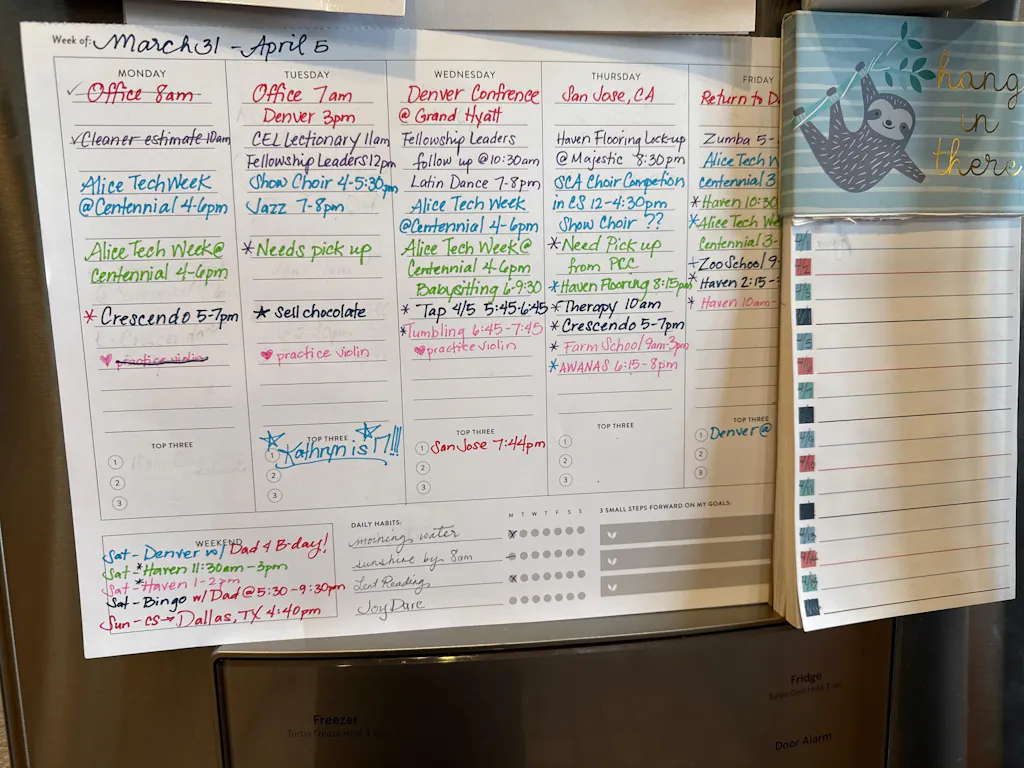 Week of: March 31 - April 5
MONDAY
Office 8am
Cleaner estimate 10am
Alice Tech Week
@Centennial 4-6pm
Alice Tech Week@
Centennial 4-6pm
* Crescendo 5-7pm
practice violin
TOP THREE
1
2
3
TUESDAY
Office 7am
Denver 3pm
CEL Lectionary 11am
Fellowship Leaders 12pm
Show Choir 4-5:30pm
Jazz 7-8pm
*Needs pick up
★ Sell chocolate
♥ practice violin
TOP THREE
Kathryn is 17!!!
1
2
3
WEDNESDAY
Denver Confrence
@ Grand Hyatt
Fellowship Leaders
follow up @10:30am
Latin Dance 7-8pm
Alice Tech Week
@Centennial 4-6pm
Alice Tech Week@
Centennial 4-6pm
Babysitting 6-9:30
* Tap 4/5 5:45-6:45
*Tumbling 6:45-7:45
♥practice violin
TOP THREE
1 San Jose 7:44pm
2
3
THURSDAY
San Jose, CA
Haven Flooring Lock-up
@ Majestic 8:30pm
SCA Choir Competion
in CS 12-4:30pm
Show Choir ??
*Need Pick up
from PCC
*Haven Flooring 8:15pm
*Therapy 10am
* Crescendo 5-7pm
* Farm School 9am-3pm
*AWANAS 6:15-8pm
TOP THREE
1
2
3
FRIDAY
Return to D
Zumba 5-
Alice Tech W
centennial 3
* Haven 10:30
*Alice Tech We
Centennial 3-
Zoo School 9-
* Haven 2:15-3
* Haven 10am-
TOP THREE
1 Denver @
2
3
WEEKEND
Sat - Denver w/ Dad 4 B-day!
Sat-*Haven 11:30am-3pm
Sat-*Haven 1-2pm
Sat-Bingo w/Dad @5:30-9:30pm
Sun-CS→Dallas, TX 4:40pm
DAILY HABITS: M T W T F S S
morning water
sunshine by 8am
Lent Reading
Joy Dare
3 SMALL STEPS FORWARD ON MY GOALS:
hang
in
there
4/1
4/2
4/3
4/5
Freezer
Fridge
Door Alarm